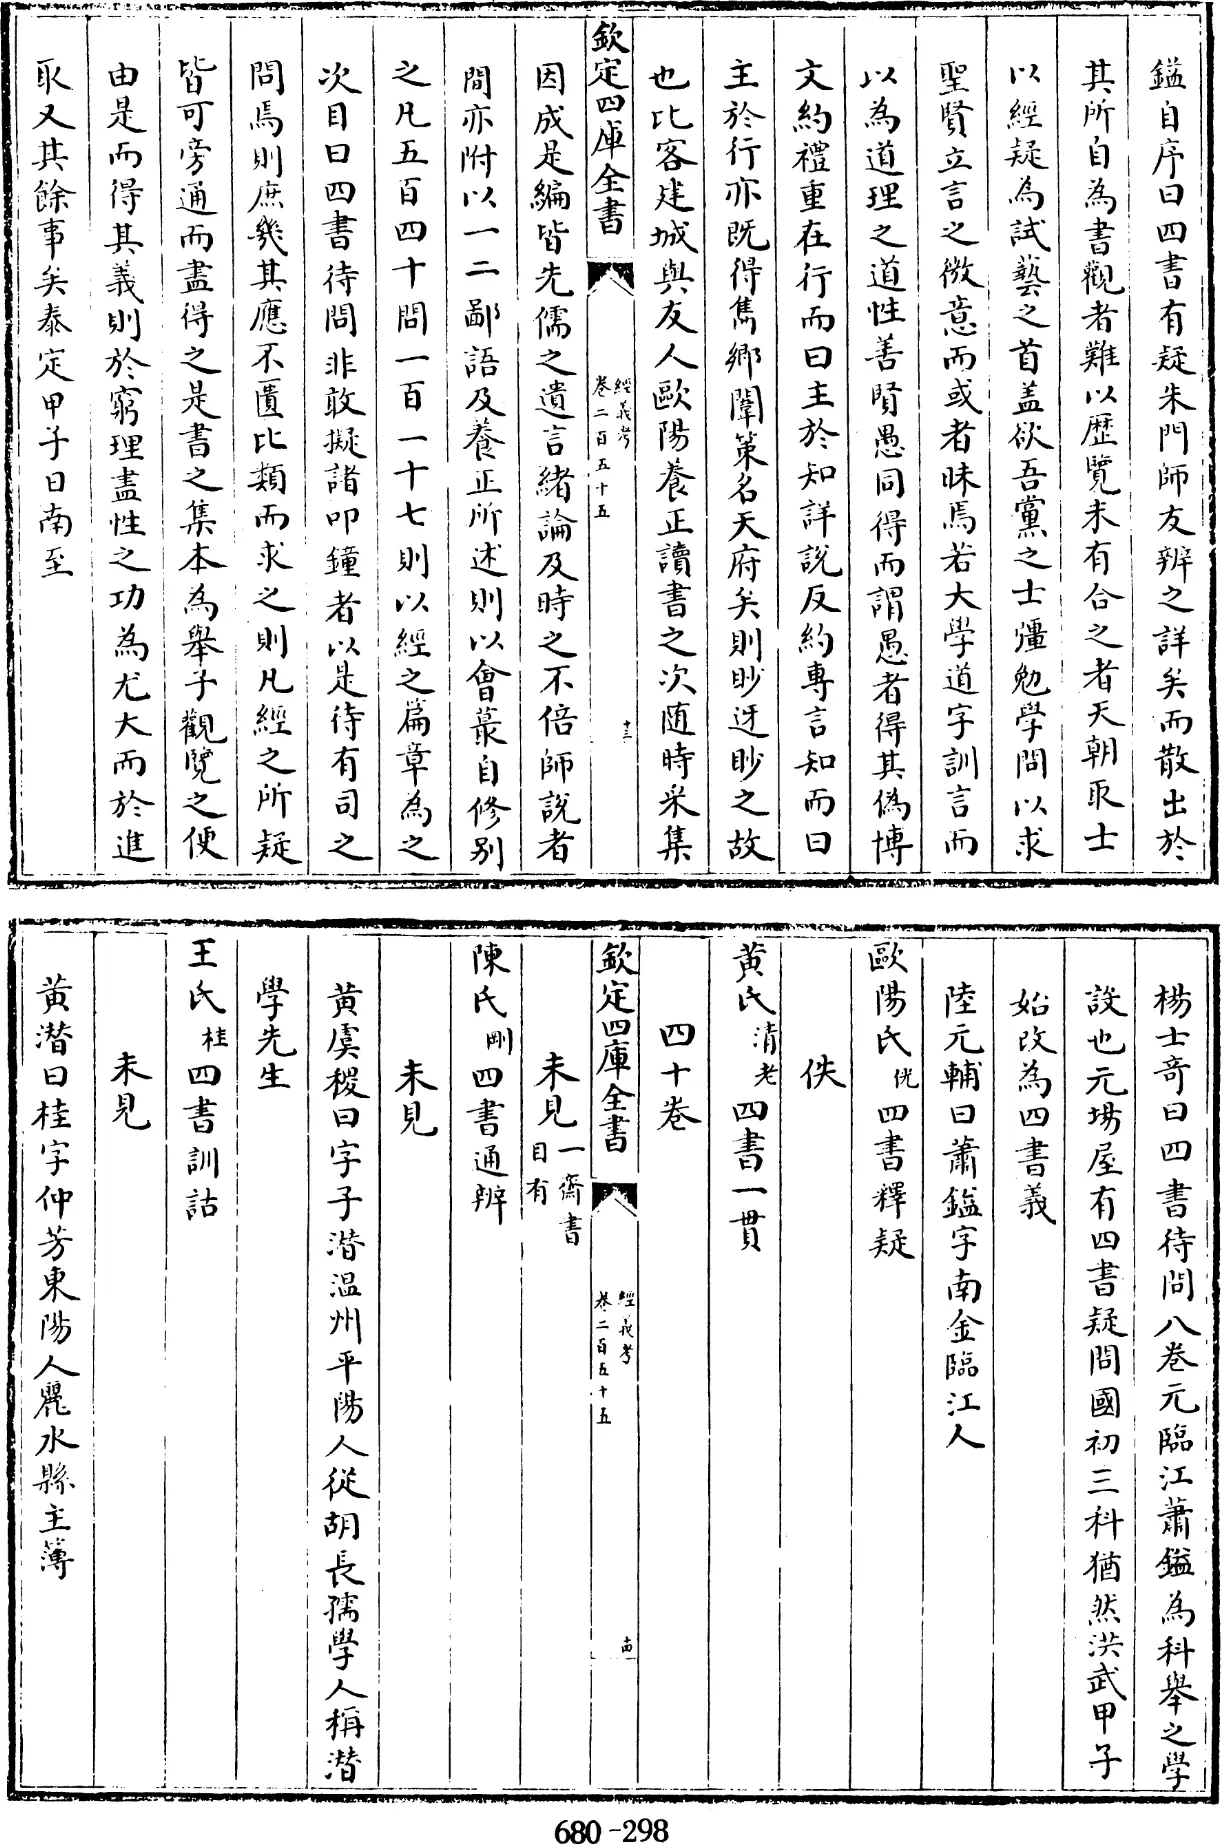 鎰自序曰四書有疑朱門師友辨之詳矣而散出於
其所自為書觀者難以歷覽未有合之者天朝取士
以經疑為試藝之首盖欲吾黨之士慬勉學問以求
聖賢立言之微意而或者昧焉若大學道字訓言而
以為道理之道性善賢愚同得而謂愚者得其偽博
文約禮重在行而曰主於知詳說反約專言知而曰
主於行亦既得雋鄉闈策名天府矣則眇迓眇之故
也比客建城與友人歐陽養正讀書之次随時采集
欽定四庫全書
經義考
卷二百五十五
十三
因成是編皆先儒之遺言緒論及時之不倍師說者
間亦附以一二鄙語及養正所述則以會蕞自修別
之凡五百四十問一百一十七則以經之篇章為之
次目曰四書待問非敢擬諸叩鐘者以是待有司之
問焉則庶幾其應不匱比類而求之則凡經之所疑
皆可旁通而盡得之是書之集本為舉子觀覽之便
由是而得其義則於窮理盡性之功為尤大而於進
取又其餘事矣泰定甲子日南至
楊士奇曰四書待問八卷元臨江蕭鎰為科舉之學
設也元場屋有四書疑問國初三科猶然洪武甲子
始改為四書義
陸元輔曰蕭鎰字南金臨江人
歐陽氏侊四書釋疑
佚
黃氏清老四書一貫
四十卷
欽定四庫全書
經義考
卷二百五十五
十四
未見一齋書目有
陳氏剛四書通辨
未見
黃虞稷曰字子潜温州平陽人從胡長孺學人稱潜
學先生
王氏桂四書訓詁
未見
黃潜曰桂字仲芳東陽人麗水縣主簿
680-298